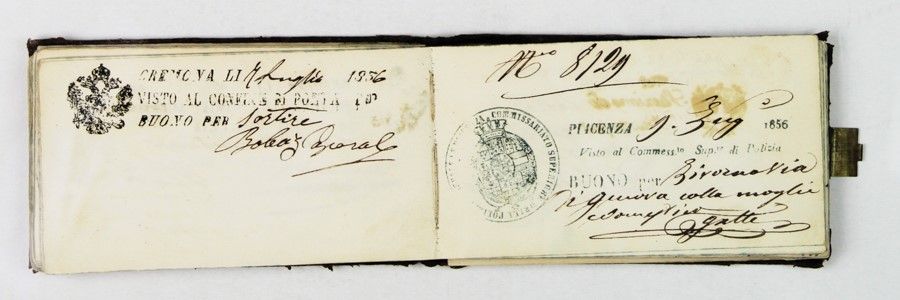 CREMONA LI 7 Luglio 1856
VISTO AL CONFINE DI PORTA PO
BUONO PER Sortire
Nro 8129
COMMISSARIATO SUPERIORE
PIACENZA 9. 1856
Visto al Commessto Supre di Polizia
BUONO per Livorno via
di Genova colla moglie
e domestico